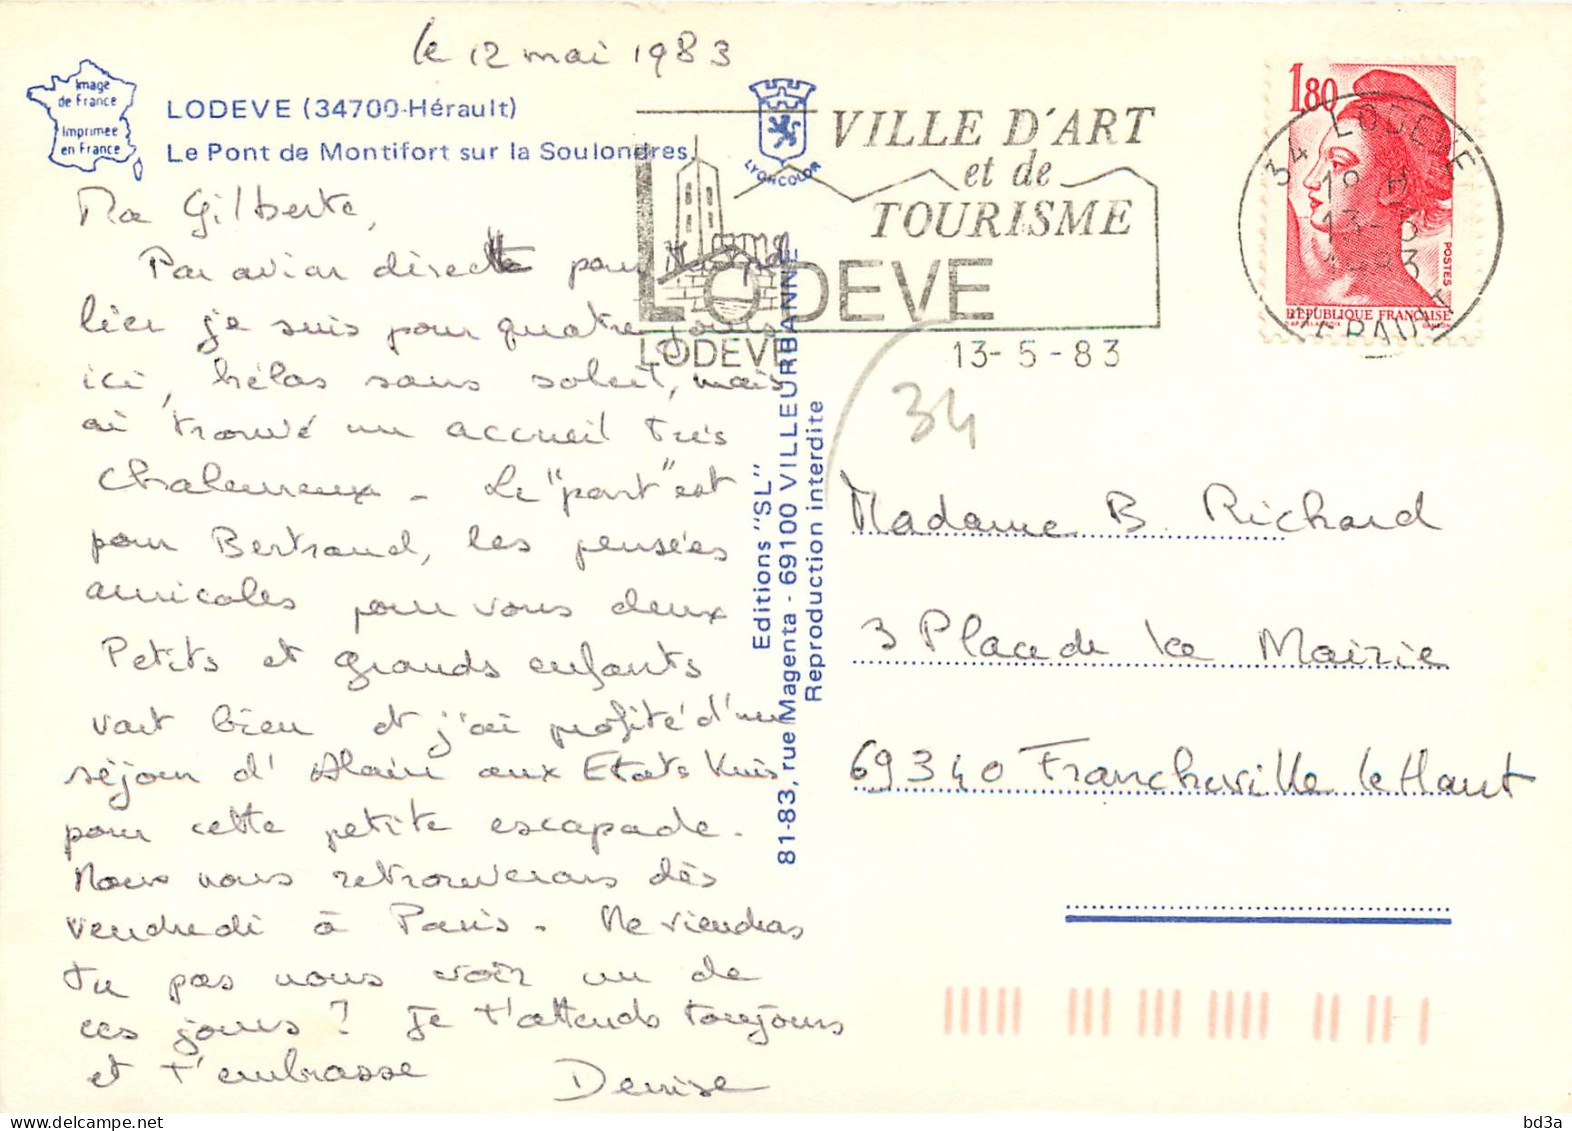 le 12 mai 1983
Image
de France
Imprimée
en France
LODEVE (34700-Hérault)
Le Pont de Montifort sur la Soulondres
LYONCOLOR
VILLE D'ART
et de
TOURISME
LODEVE
LODEVE
13-5-83
1,80
POSTES
REPUBLIQUE FRANÇAISE
34 LODEVE
18 H
13-5
1983
HERAULT
34
Ma Gilberte,
Par avion directe pour
lier je suis pour quatre jours
ici, hélas sans soleil, mais
ai trouvé un accueil très
chaleureux - Le "pont" est
pour Bertrand, les pensées
amicales pour vous deux
Petits et grands enfants
vont bien et j'ai profité d'un
séjour d'Alain aux Etats Unis
pour cette petite escapade.
Nous nous retrouverons dès
vendredi à Paris - Ne viendras
tu pas nous voir un de
ces jours ? Je t'attends toujours
et t'embrasse
Denise
Editions "SL"
81-83, rue Magenta - 69100 VILLEURBANNE
Reproduction interdite
Madame B. Richard
3 Place de la Mairie
69340 Francheville le Haut
bd3a